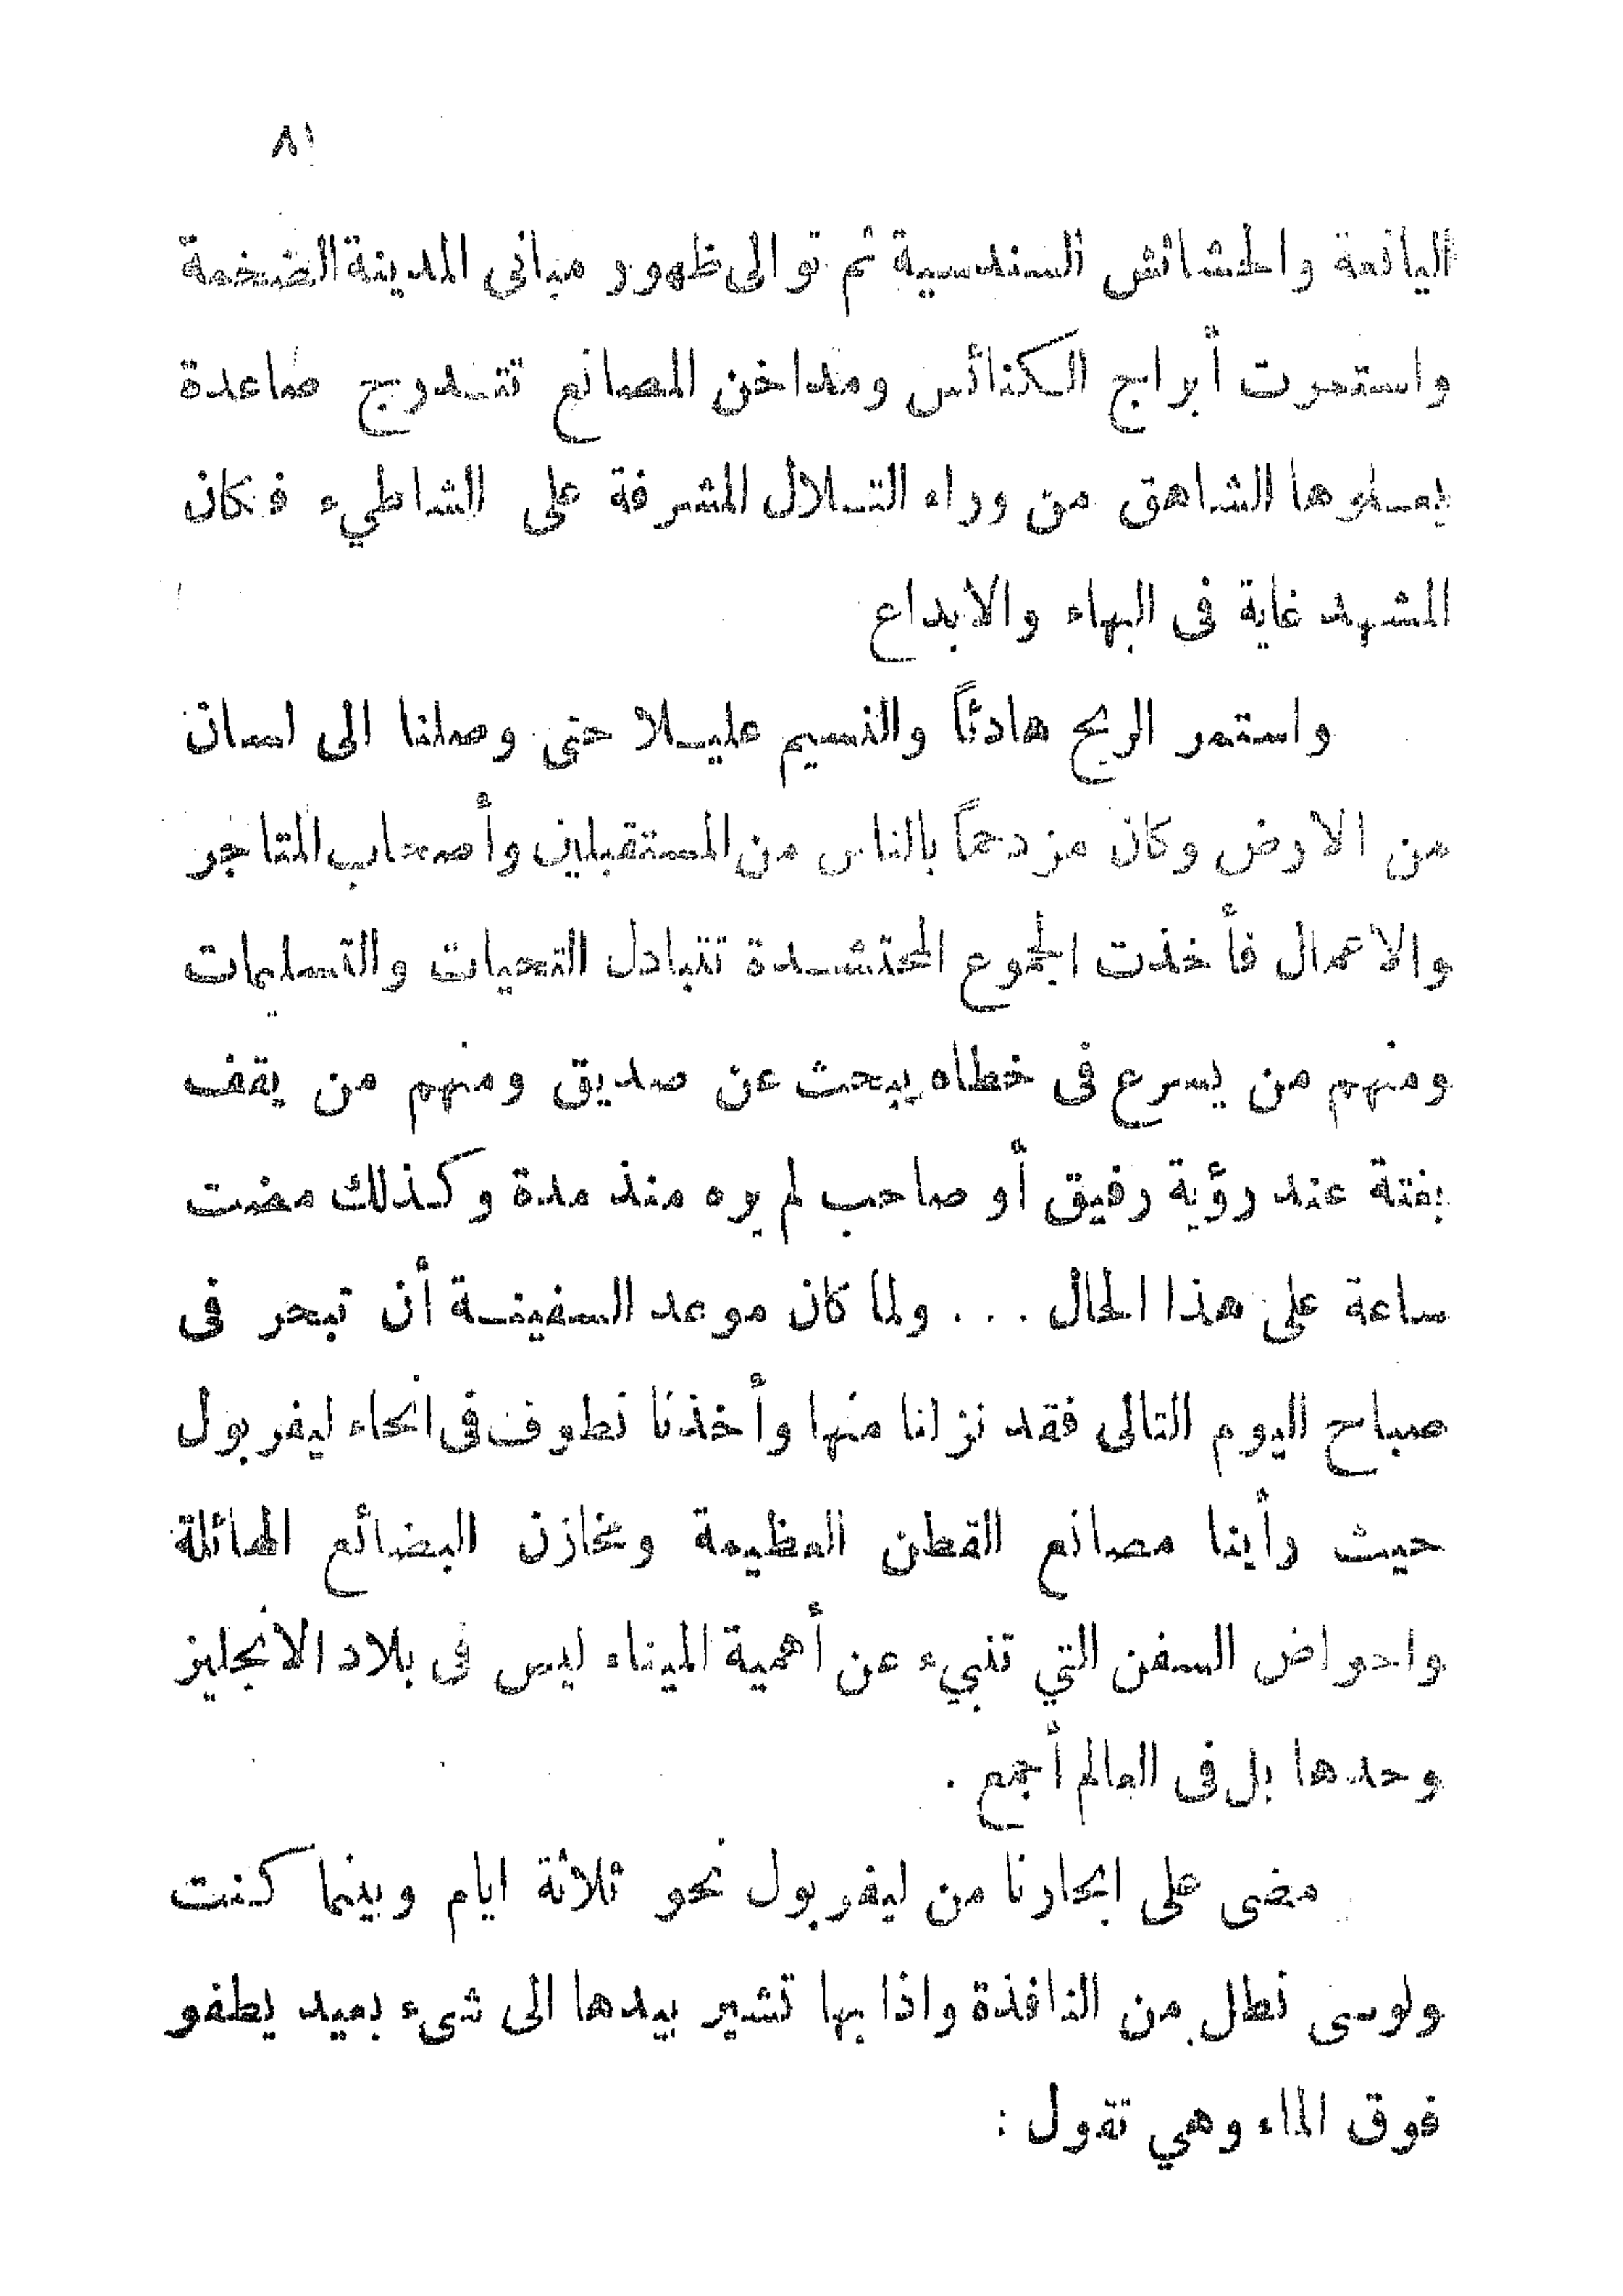 ٨١
اليانعة والحشائش السندسية ثم توالى ظهور مبانى المدينة الضخمة
واستمرت أبراج الكنائس ومداخن المصانع تتدرج صاعدة
بعلوها الشاهق من وراء التلال المشرفة على الشاطيء فكان
المشهد غاية فى البهاء والابداع
واستمر الريح هادئاً والنسيم عليلا حتى وصلنا الى لسان
من الارض وكان مزدحماً بالناس من المستقبلين وأصحاب المتاجر
والاعمال فأخذت الجموع المحتشدة تتبادل التحيات والتسليمات
ومنهم من يسرع فى خطاه يبحث عن صديق ومنهم من يقف
بغتة عند رؤية رفيق أو صاحب لم يره منذ مدة وكذلك مضت
ساعة على هذا الحال . . . ولما كان موعد السفينة أن تبحر فى
صباح اليوم التالى فقد نزلنا منها وأخذنا نطوف فى انحاء ليفربول
حيث رأينا مصانع القطن العظيمة ومخازن البضائع الهائلة
واحواض السفن التي تنبيء عن أهمية الميناء ليس فى بلاد الانجليز
وحدها بل فى العالم أجمع .
مضى على ابحارنا من ليفربول نحو ثلاثة ايام وبينما كنت
ولوسى نطل من النافذة واذا بها تشير بيدها الى شىء بعيد يطفو
فوق الماء وهي تقول :